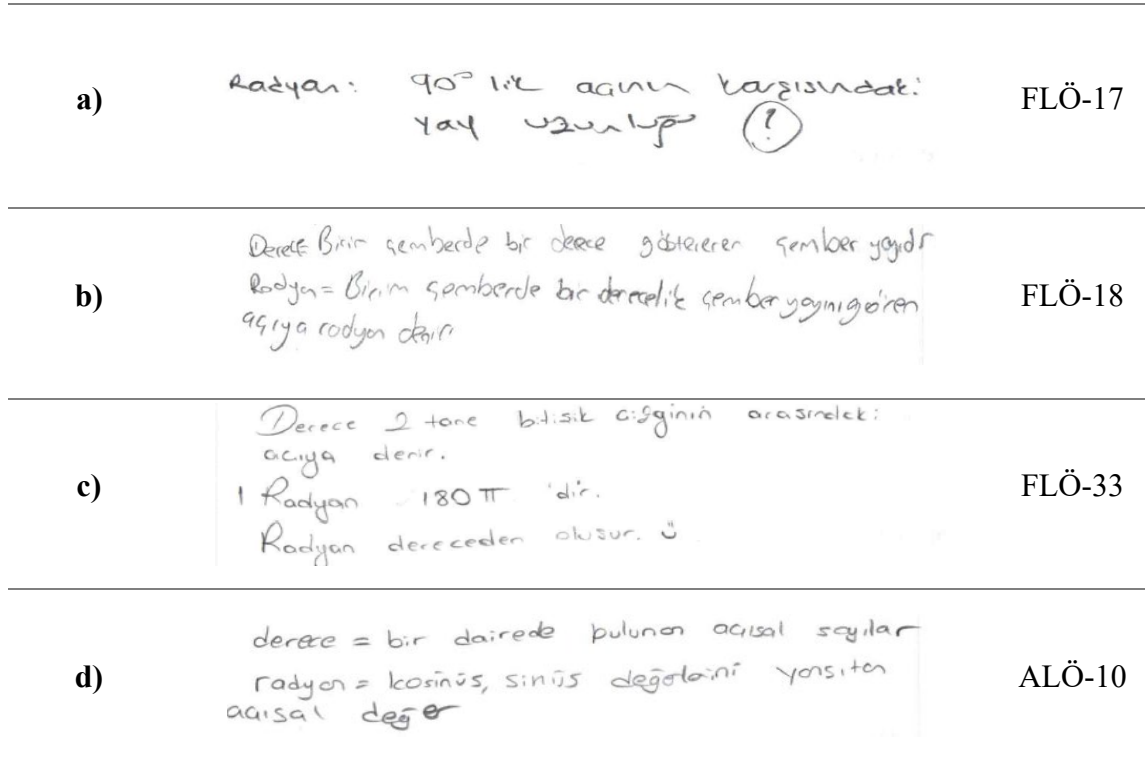 a)
Radyan: 90° lik açının karşısındaki
yay uzunluğu (?)
FLÖ-17
b)
Derece= Birim çemberde bir derece gösteren çember yayıdır
Radyan= Birim çemberde bir derecelik çember yayını gören
açıya radyan denir
FLÖ-18
c)
Derece 2 tane bitişik çizginin arasındaki
açıya denir.
1 Radyan 180 π 'dir.
Radyan dereceden oluşur. ü
FLÖ-33
d)
derece = bir dairede bulunan açısal sayılar
radyan = kosinüs, sinüs değerlerini yansıtan
açısal değer
ALÖ-10